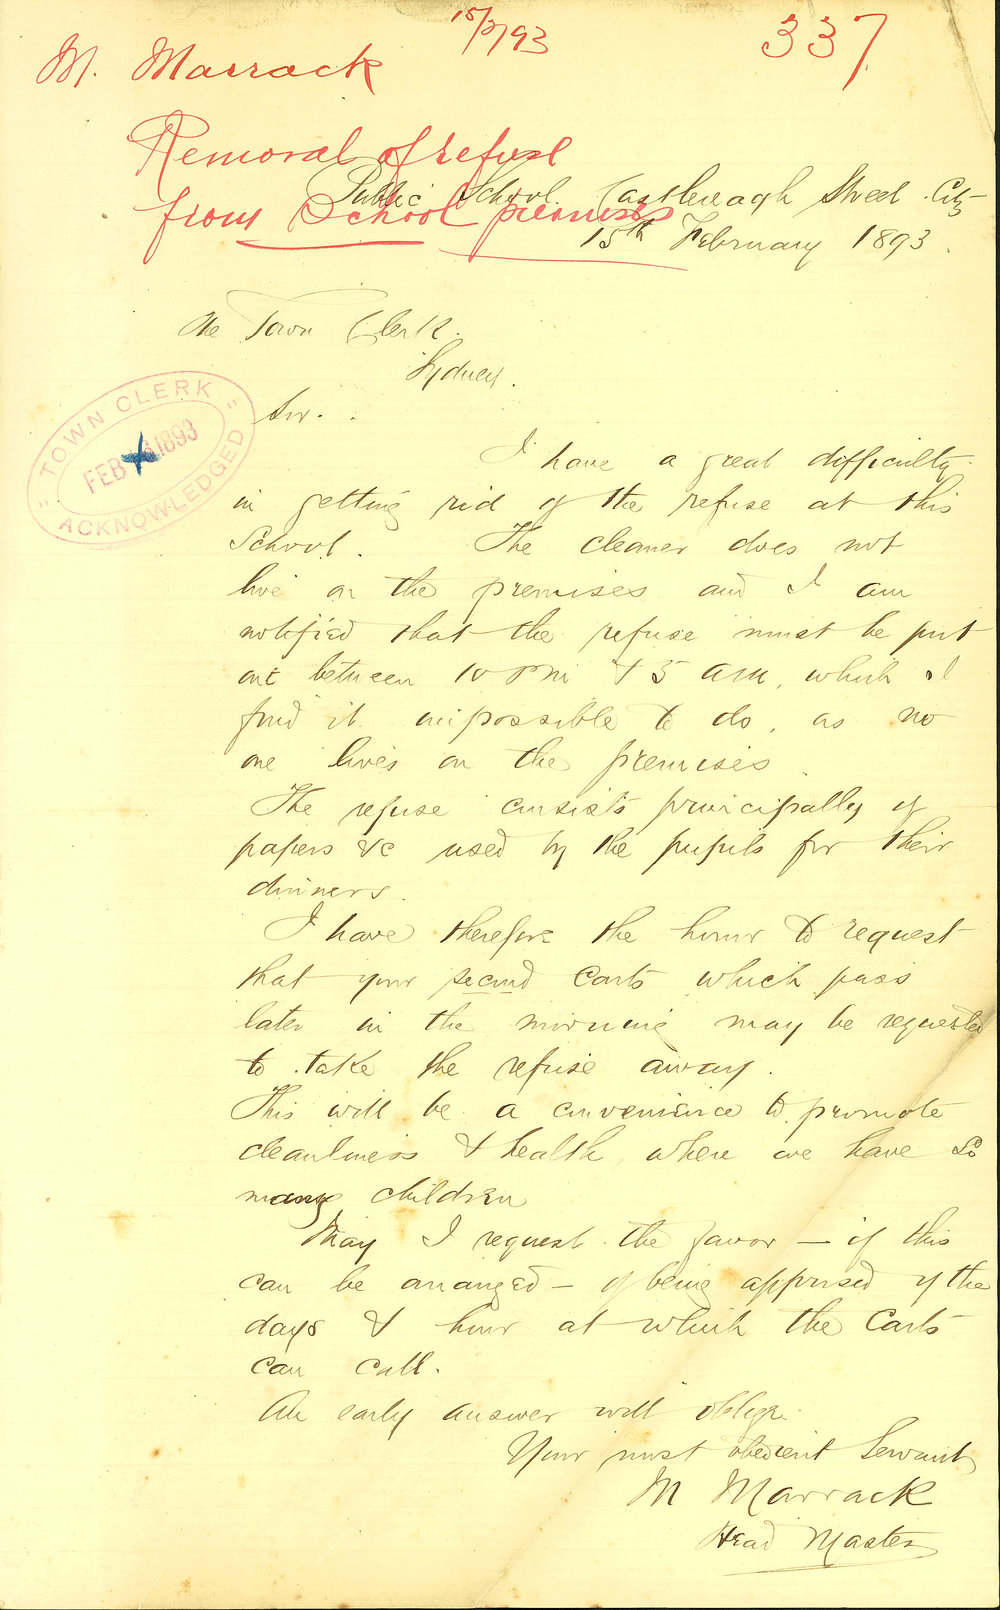 15/2/93
337
M. Marrack
Removal of refuse
from School premises
Public School. Castlereagh Street. City
15th February 1893.
The Town Clerk.
Sydney.
TOWN CLERK
FEB 1893
ACKNOWLEDGED
Sir.
I have a great difficulty
in getting rid of the refuse at this
School. The cleaner does not
live on the premises and I am
notified that the refuse must be put
out between 10 pm & 5 am, which I
find it impossible to do, as no
one lives on the premises.
The refuse consists principally of
papers &c used by the pupils for their
dinners.
I have therefore the honor to request
that your second carts which pass
later in the morning may be requested
to take the refuse away.
This will be a convenience to promote
cleanliness & health where we have so
many children
May I request the favor – if this
can be arranged – of being apprised of the
days & hour at which the Carts
can call.
An early answer will oblige.
Your most obedient Servant,
M Marrack
Head Master